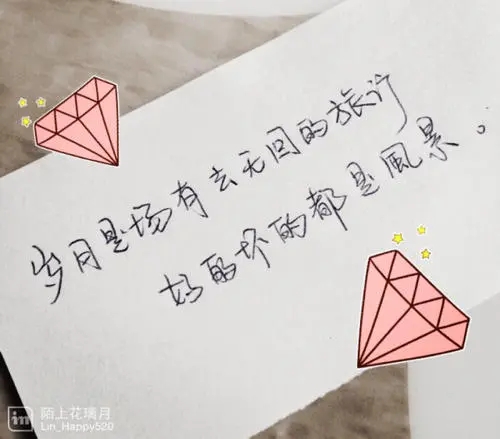 岁月是场有去无回的旅行
好的坏的都是风景。
in 陌上花璃月
Lin_Happy520